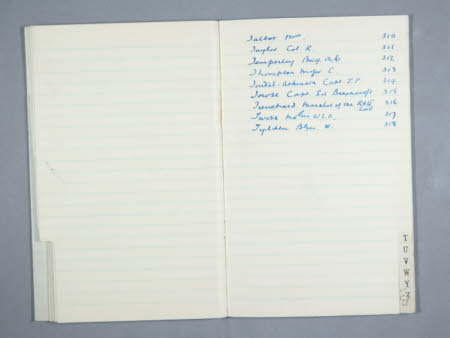 Talbot Mrs. 310
Taylor Col. R 311
Temperley Maj. A.C 312
Thompson Major C 313
Tindal-Atkinson Capt. T.P. 314
Towse Capt. Sir Beachcroft 315
Trenchard Marshal of the RAF Lord 316
Twiss W.L.O. 317
Tylden W. 318
T
U
V
W
Y
Z